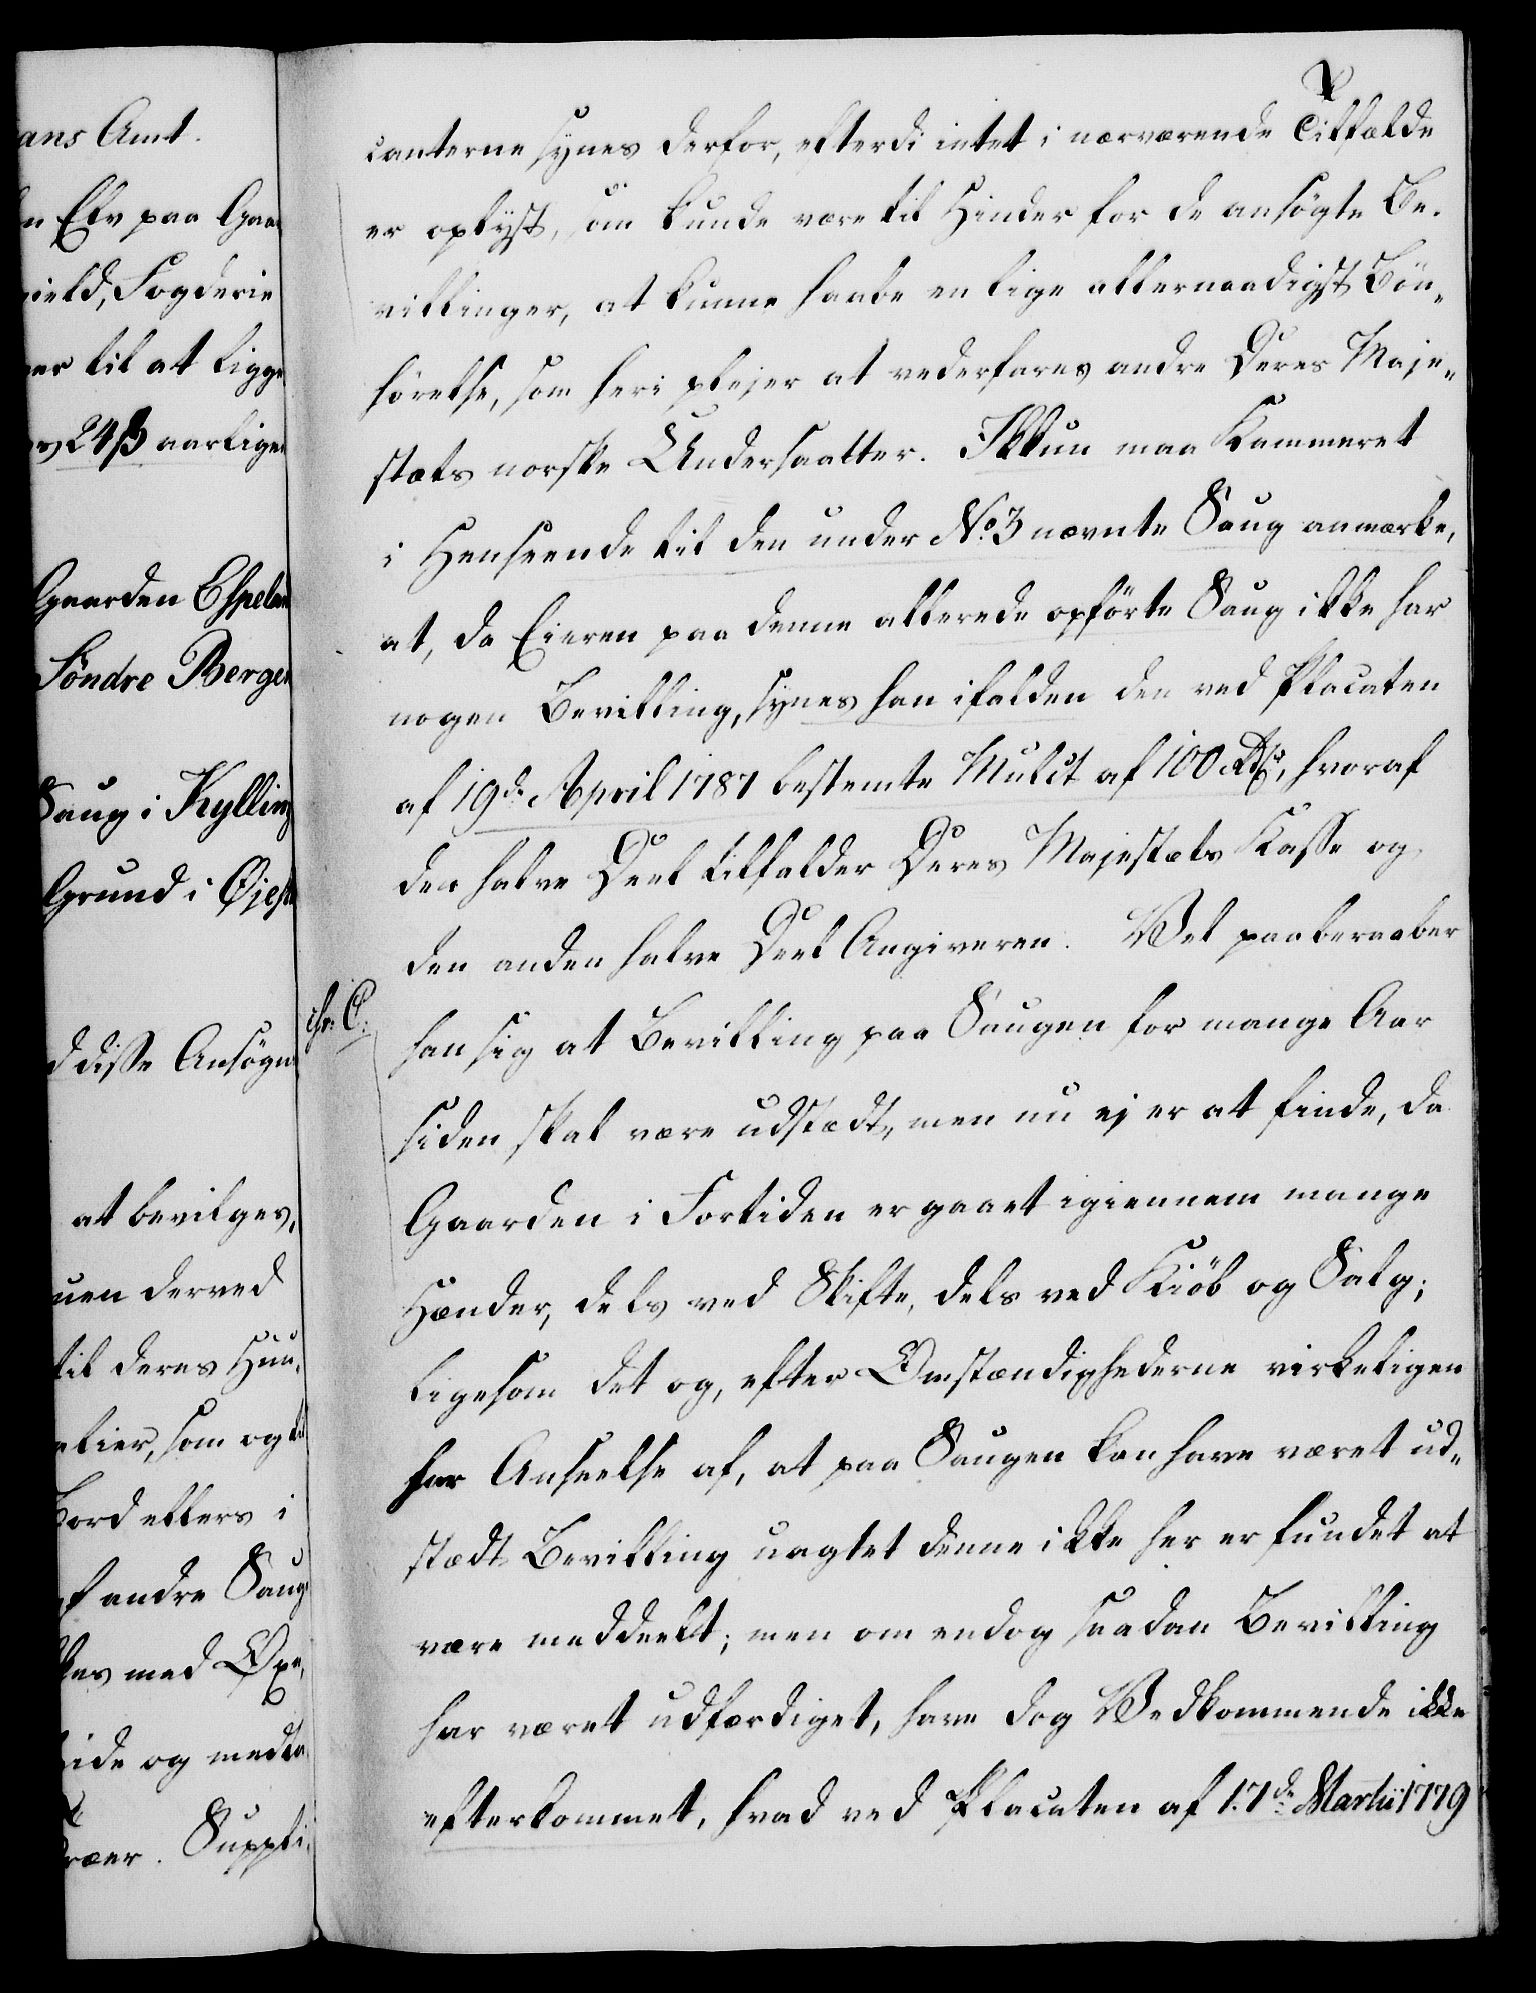 ans Amt.
n Elv paa Gaar
ield, Fogderie
er til at ligge
24 ß aarligen
Gaarden Espelan
Söndre Bergen
Saug i Kylling
Grund i Øjest
d disse Ansøgn
at bevilges,
uen derved
til deres Huu,
atier, som og ti
Bord ellers i
f andre Saug
kes med Oxe,
ide og medta
ræer. Suppli,
canterne synes derfor, efterdi intet i nærværende Tilfælde
er oplyst, som kunde være til Hinder for de ansøgte Be,
villinger, at kunne haabe en lige allernaadigst Bön„
hörelse, som heri plejer at vederfares andre Deres Maje„
stæts norske Undersaatter. Ikkun maa Kammeret
i Henseende til den under No. 3 nævnte Saug anmærke,
at, da Eieren paa denne allerede opförte Saug ikke har
nogen Bevilling, synes han ifalden den ved Placaten
af 19de April 1787 bestemte Mulct af 100 Rdr, hvoraf
den halve Deel tilfalder Deres Majestæts Kasse og
den anden halve Deel Angiveren. Vel paaberaaber
chr: C:
han sig at Bevilling paa Saugen for mange Aar
siden skal være udstædt, men nu ej er at finde, da
Gaarden i Fortiden er gaaet igiennem mange
Hænder, dels ved Skifte, dels ved Kiöb og Salg;
ligesom det og, efter Omstændighederne virkeligen
har Anseelse af, at paa Saugen kan have været ud„
stædt Bevilling uagtet denne ikke her er fundet at
være meddeelt; men om endog saadan Bevilling
har været udfærdiget, have dog Vedkommende ikke
efterkommet, hvad ved Placaten af 17de Martii 1779